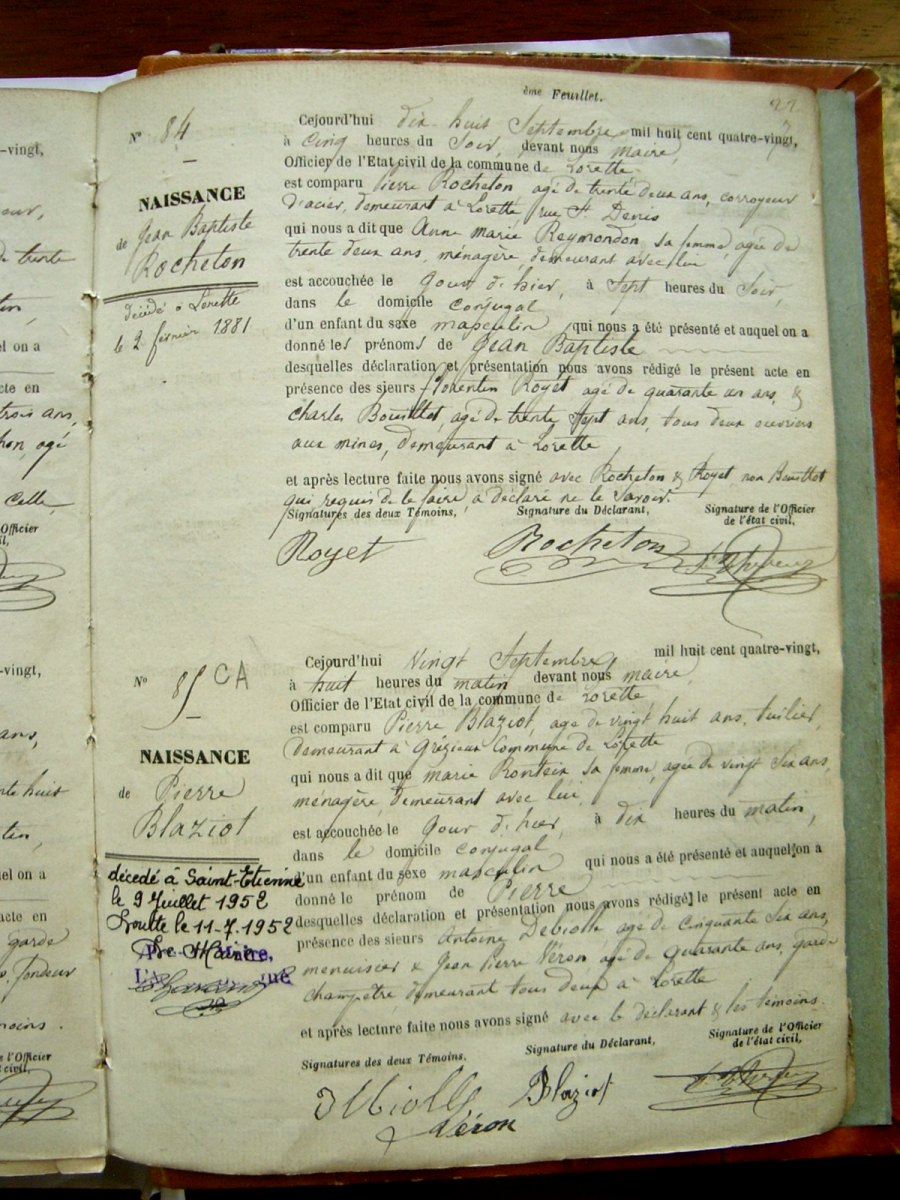 -vingt,
trente
el on a
acte en
trois ans,
hon, agé
Celle
l'Officier
civil,
-vingt,
ans,
huit
el on a
acte en
garde
fondeur
témoins.
de l'Officier
civil,
ème Feuillet.
22
N° 84
NAISSANCE
de Jean Baptiste
Rocheton
décédé à Lorette
le 2 février 1881
Cejourd'hui dix huit Septembre mil huit cent quatre-vingt,
à cinq heures du Soir, devant nous maire,
Officier de l'Etat civil de la commune de Lorette
est comparu Pierre Rocheton agé de trente deux ans, corroyeur
d'acier, demeurant à Lorette, rue St Denis
qui nous a dit que Anne Marie Reymondon, sa femme, agée de
trente deux ans, ménagère, demeurant avec lui
est accouchée le Jour d'hier, à Sept heures du Soir,
dans le domicile conjugal
d'un enfant du sexe masculin qui nous a été présenté et auquel on a
donné les prénoms de Jean Baptiste
desquelles déclaration et présentation nous avons rédigé le présent acte en
présence des sieurs Florentin Royet agé de quarante un ans, &
Charles Bouillot, agé de trente Sept ans, tous deux ouvriers
aux mines, demeurant à Lorette
et après lecture faite nous avons signé avec Rocheton & Royet non Bouillot
qui requis de le faire, a déclaré ne le Savoir.
Signatures des deux Témoins, Signature du Déclarant, Signature de l'Officier
de l'état civil,
Royet Rocheton
N° 85 CA
NAISSANCE
de Pierre
Blaziot
décédé à Saint-Etienne
le 9 Juillet 1952
Lorette le 11-7-1952
Le Maire,
Cejourd'hui Vingt Septembre mil huit cent quatre-vingt,
à huit heures du matin devant nous maire,
Officier de l'Etat civil de la commune de Lorette
est comparu Pierre Blaziot, agé de vingt huit ans, tuilier,
demeurant à Grézieux Commune de Lorette
qui nous a dit que Marie sa femme, agée de vingt six ans,
ménagère, demeurant avec lui,
est accouchée le Jour d'hier, à dix heures du matin,
dans le domicile conjugal
d'un enfant du sexe masculin qui nous a été présenté et auquel on a
donné le prénom de Pierre
desquelles déclaration et présentation nous avons rédigé le présent acte en
présence des sieurs Antoine agé de Cinquante Six ans,
menuisier & Jean Pierre Véron agé de quarante ans, garde
champêtre, demeurant tous deux à Lorette
et après lecture faite nous avons signé avec le déclarant & les témoins.
Signatures des deux Témoins, Signature du Déclarant, Signature de l'Officier
de l'état civil,
Blaziot
Véron